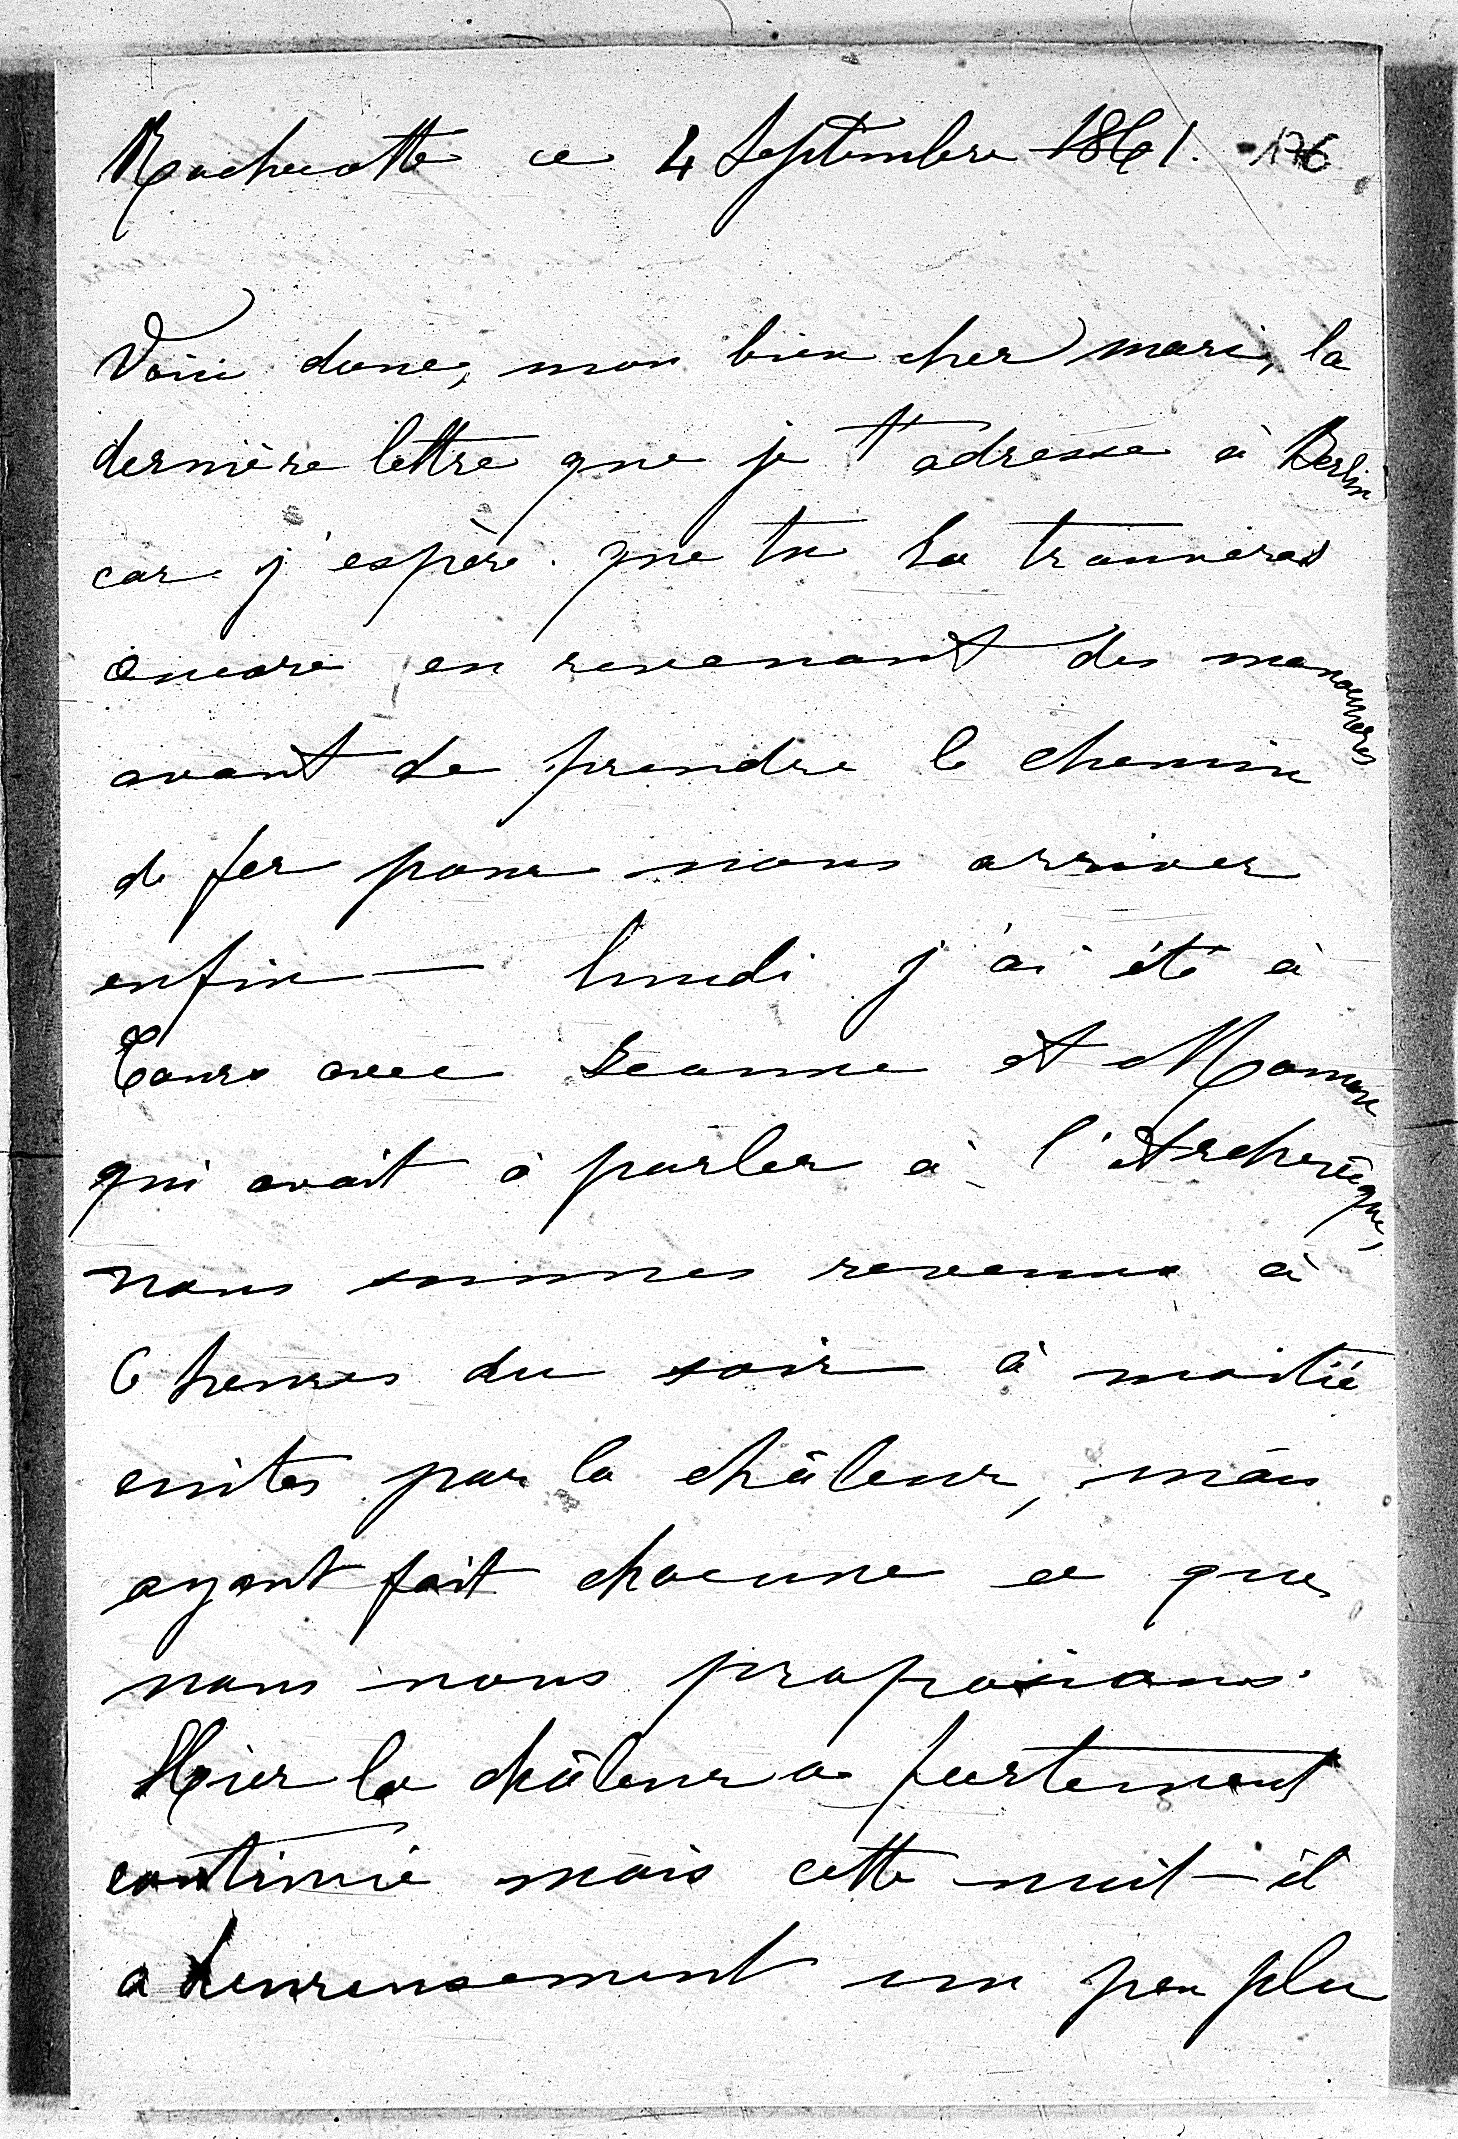 Rochecotte ce 4 Septembre 1861. 176
Voici donc, mon bien cher mari, la
dernière lettre que je t'adresse à Berlin
car j'espère que tu la trouveras
encore en revenant des manœuvres
avant de prendre le chemin
de fer pour nous arriver
enfin — lundi j'ai été à
Tours avec Jeanne et Maman
qui avait à parler à l'Archevêque,
nous sommes revenus à
6 heures du soir à moitié
cuites par la châleur, mais
ayant fait chacune ce que
nous nous proposions.
Hier la châleur a fortement
continué mais cette nuit il
a heureusement un peu plu